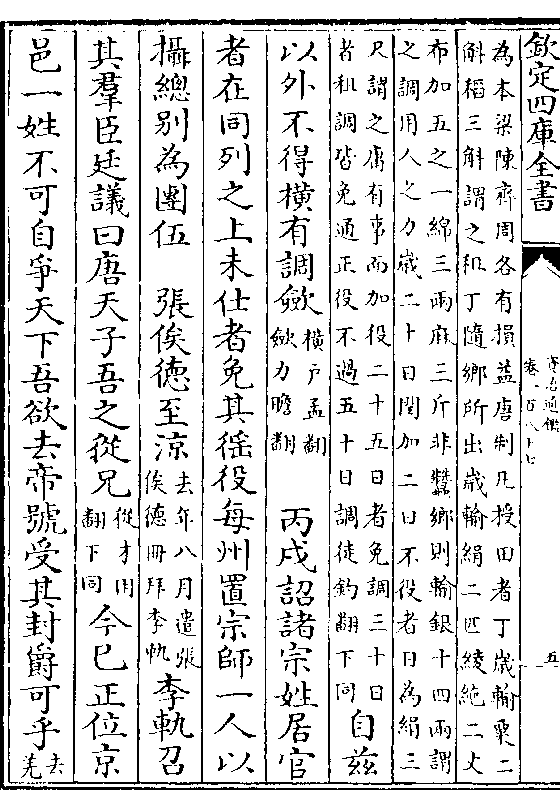 欽定四庫全書
資治通鑑
卷一百八十七
五
為本梁陳齊周各有損益唐制凡授田者丁歲輸粟二
斛稻三斛謂之租丁隨鄉所出歲輸絹二匹綾絁二丈
布加五之一綿三兩麻三斤非蠶鄉則輸銀十四兩謂
之調用人之力歲二十日閏加二日不役者日為絹三
尺謂之庸有事而加役二十五日者免調三十日
者租調皆免通正役不過五十日調徒釣翻下同自兹
以外不得橫有調斂橫戶孟翻斂力瞻翻 丙戌詔諸宗姓居官
者在同列之上未仕者免其徭役每州置宗師一人以
攝總別為團伍 張俟德至涼去年八月遣張俟德冊拜李軌李軌召
其羣臣廷議曰唐天子吾之從兄從才用翻下同今已正位京
邑一姓不可自爭天下吾欲去帝號受其封爵可乎去羌